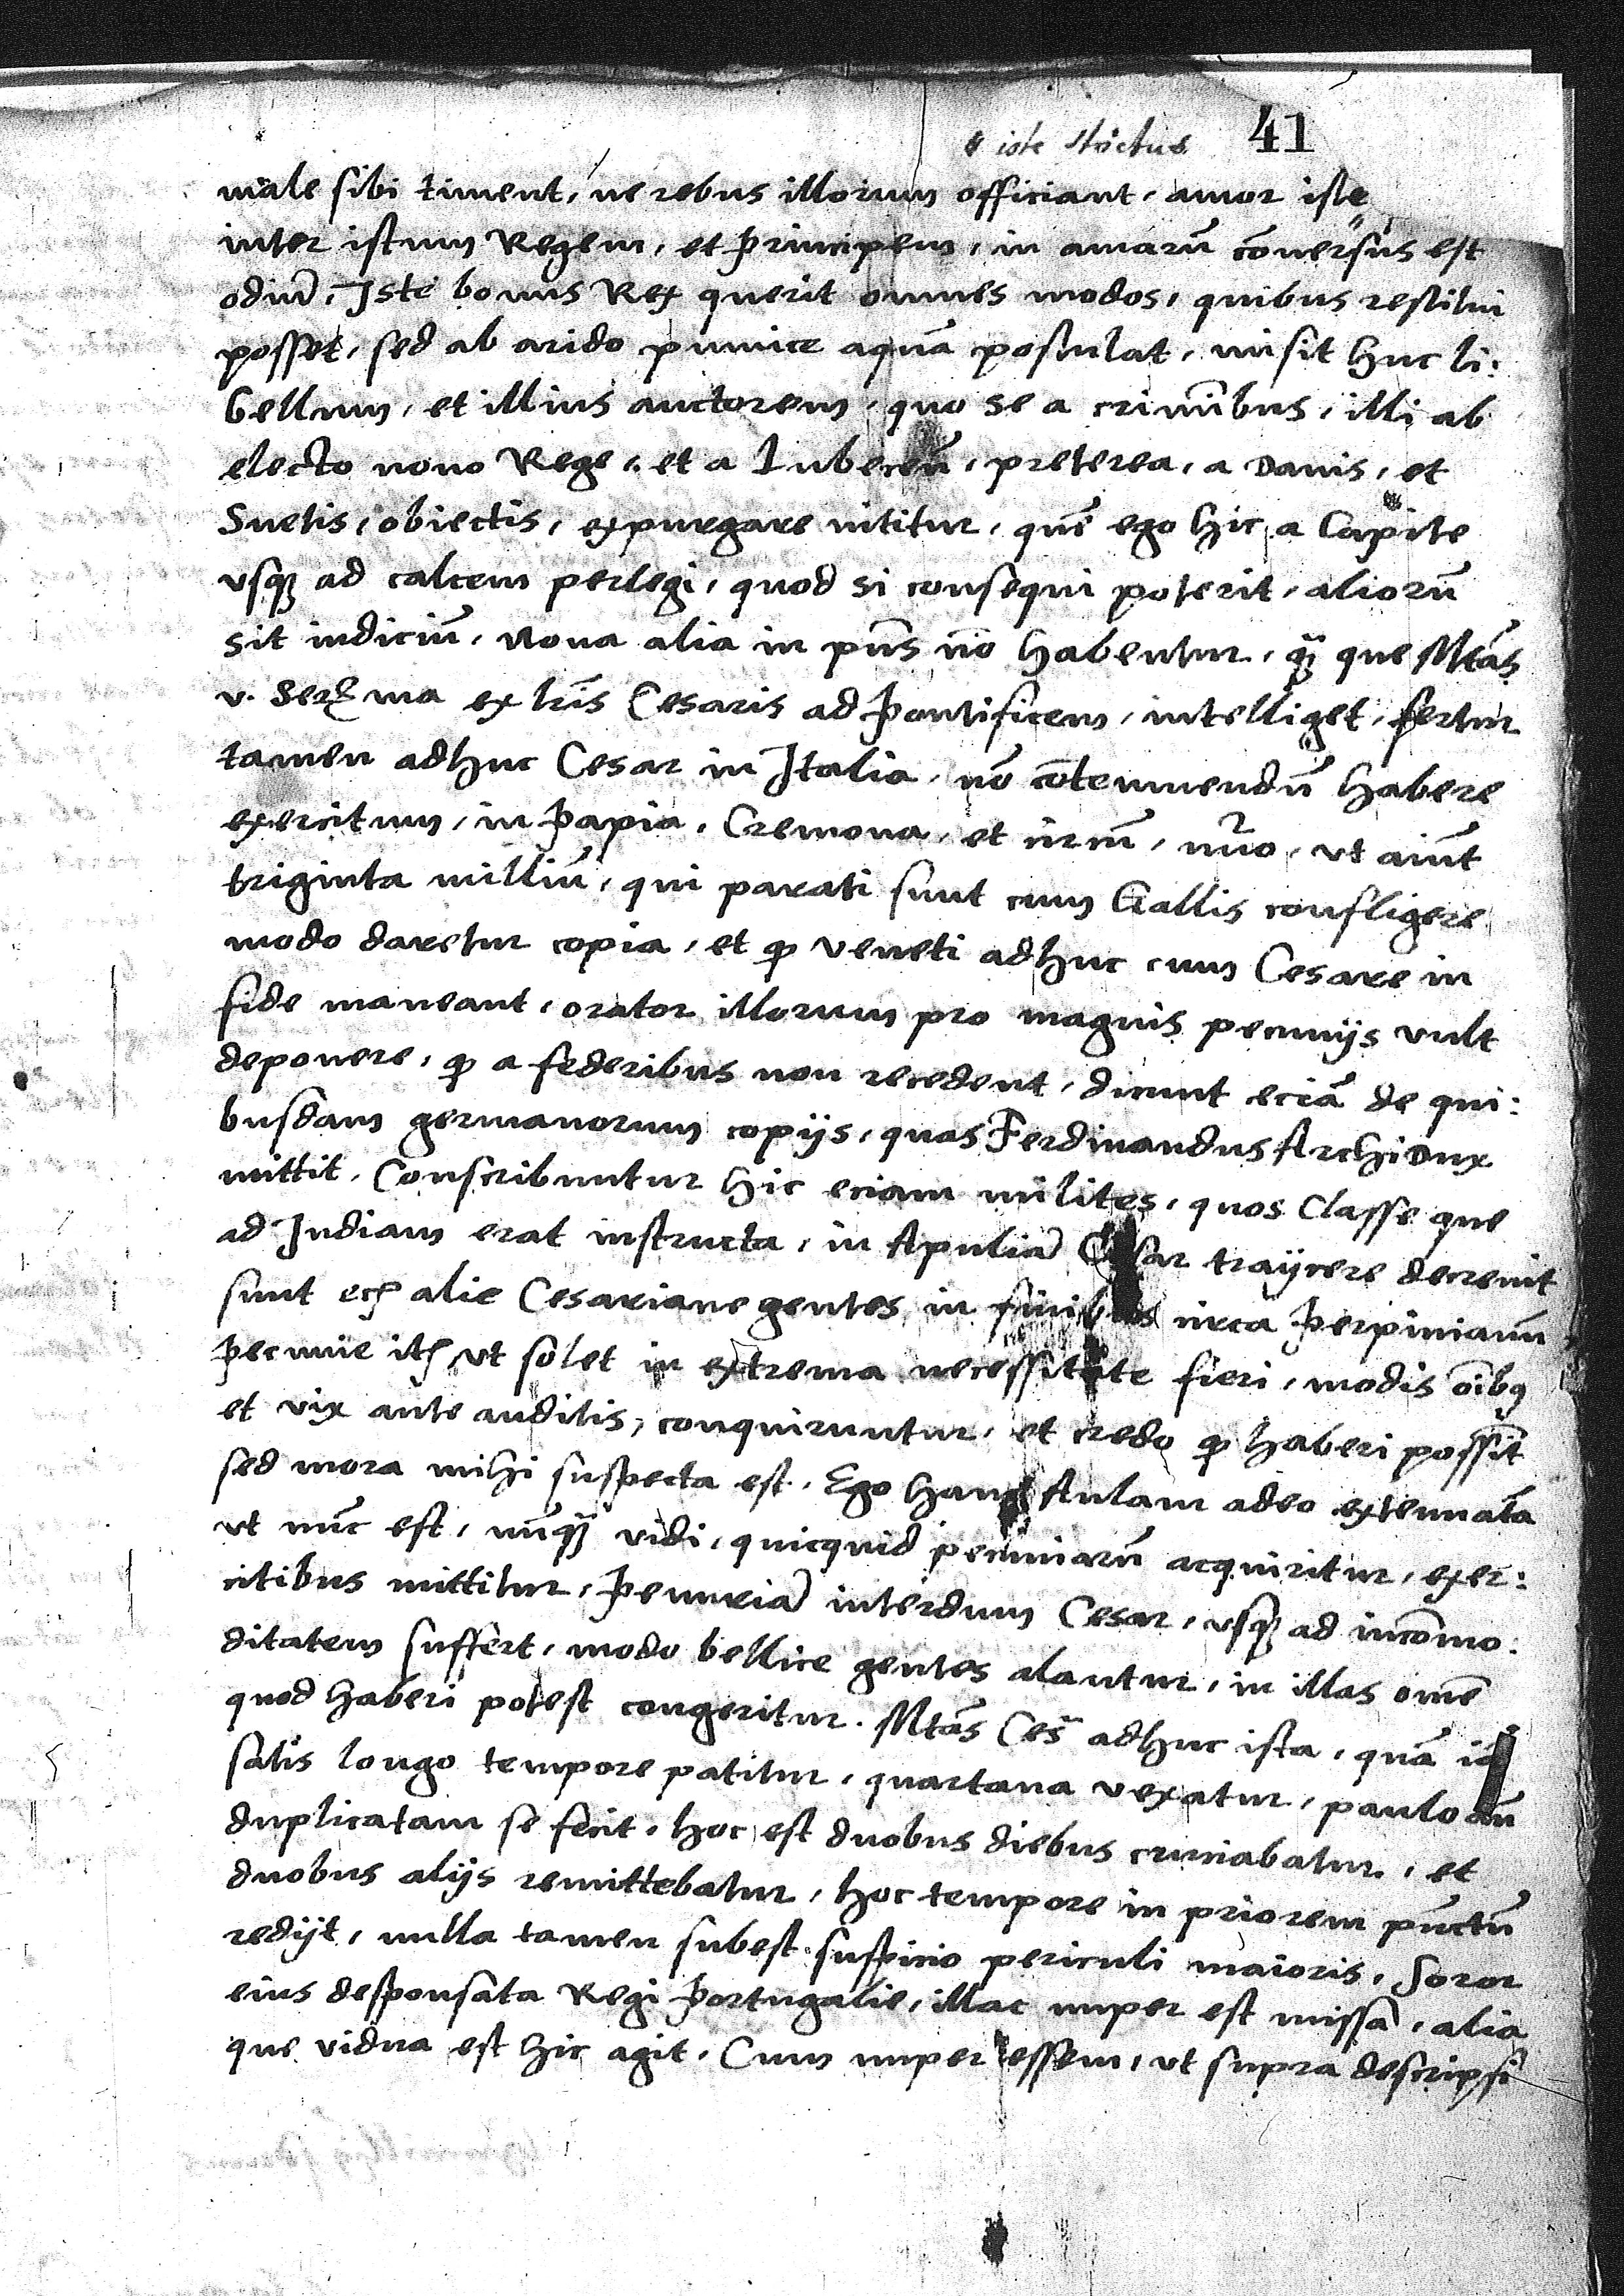 iste strictus 41
male sibi timent, ne rebus illorum officiant, amor iste
inter istum Regem, et principem, in amarū cōuersus est
odiū, Iste bonus Rex querit omnes modos, quibus restitui
posset, sed ab arido pumice aquā postulat, misit huc li:
bellum, et illius auctorem, quo se a criminibus, illi ab
electo nouo Rege, et a Lubecen̄, preterea, a Danis, et
Suetis, obiectis, expurgare nititur, quē ego hic a Capite
vsq ad calcem perlegi, quod si consequi poterit, aliorū
sit iudiciū, Noua alia in pn̄s nō habentur, q̄ que Mtās
v. Serma ex lr̄is Cesaris ad pontificem, intelliget, fertur
tamen adhuc Cesar in Italia, nō cōtemnendū habere
exercitum, in papia, Cremona, et circū, nūo, vt aiūt
triginta milliū, qui parati sunt cum Gallis confligere
modo daretur copia, et q Veneti adhuc cum Cesare in
fide maneant, orator illorum pro magnis pecunijs vult
deponere, q a federibus non recedent, dicunt eciā de qui:
busdam germanorum copijs, quas Ferdinandus Archidux
mittit, Conscribuntur hic eciam milites, quos Classe que
ad Indiam erat instructa, in Apuliā Cesar traijcere decreuit
sunt ec alie Cesariane gentes in finibus circa perpinianū
pecunie it vt solet in extrema necessitate fieri, modis oībq
et vix ante auditis, conquiruntur, et credo q haberi possīt
sed mora mihi suspecta est, Ego hanc Aulam adeo extenuatā
vt nūc est, nūq̄ vidi, quicquid pecuniarū acquiritur, exer:
citibus mittitur, penuriā interdum Cesar, vsq ad incōmo:
ditatem suffert, modo bellice gentes alantur, in illas omē
quod haberi potest congeritur. Mtās Ces adhuc ista, quā iā
satis longo tempore patitur, quartana vexatur, paulo an̄
duplicatam se fecit, hoc est duobus diebus cruciabatur, et
duobus alijs remittebatur, hoc tempore in priorem pūctū
redijt, nulla tamen subest suspicio periculi maioris, Soror
eius desponsata Regi portugalie, illac nuper est missa, alia
que vidua est hic agit. Cum nuper essem, vt supra descripsi